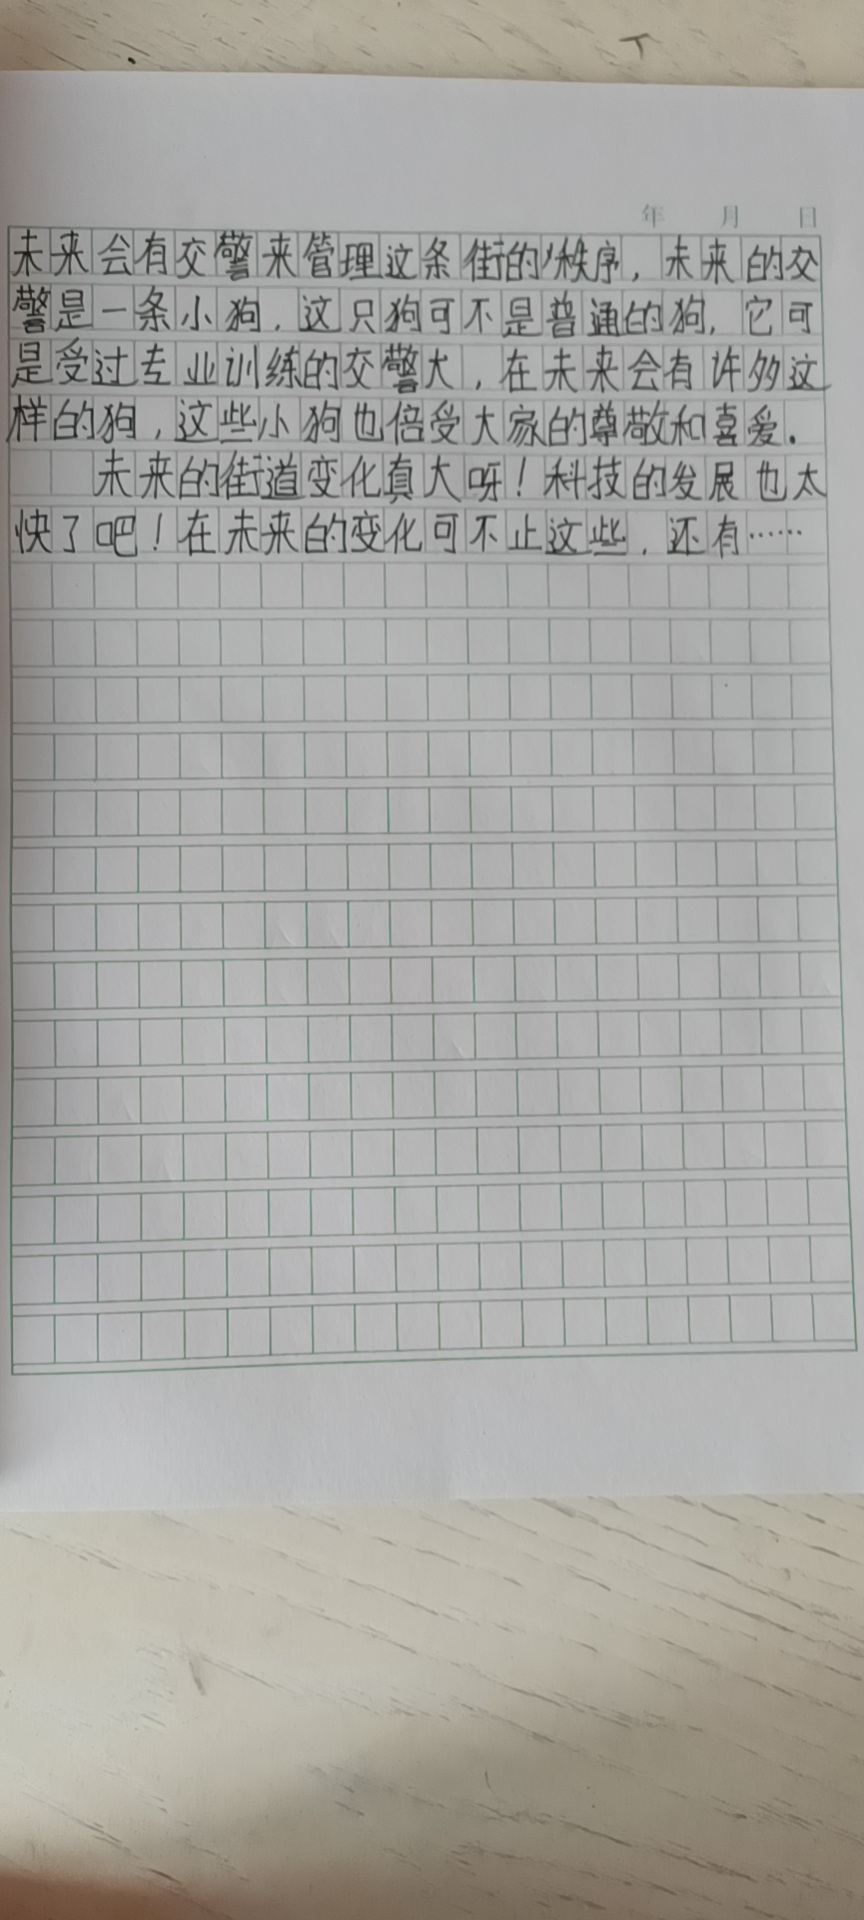 年 月 日
未来会有交警来管理这条街的秩序，未来的交
警是一条小狗，这只狗可不是普通的狗，它可
是受过专业训练的交警犬，在未来会有许多这
样的狗，这些小狗也倍受大家的尊敬和喜爱。
未来的街道变化真大呀！科技的发展也太
快了吧！在未来的变化可不止这些，还有……